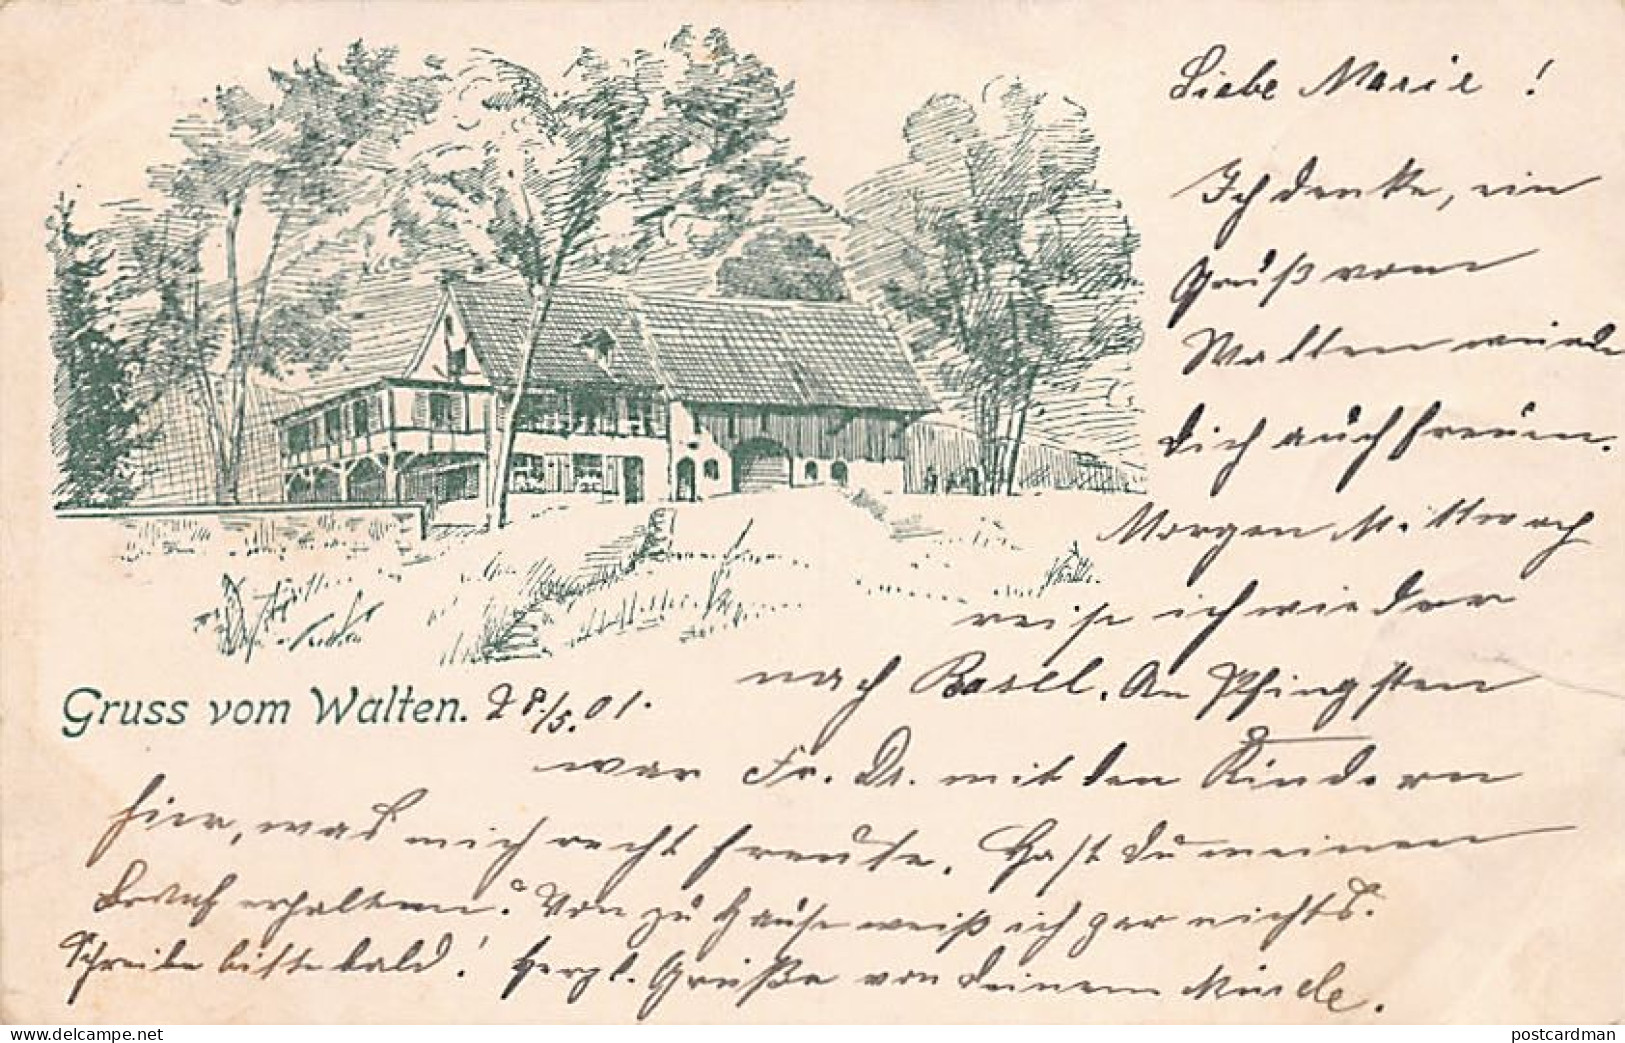 Liebe Marie!
Ich denke, ein
Gruß vom
Walten würde
dich auch freuen.
Morgen Mittwoch
reise ich wieder
nach Basel. An Pfingsten
Gruss vom Walten. 28./5.01.
war Fr. Dr. mit den Kindern
hier, was mich recht freute. Hast du meinen
Brief erhalten? Von zu Hause weiß ich gar nichts.
Schreibe bitte bald! Herzl. Grüße von deinem
www.delcampe.net
postcardman